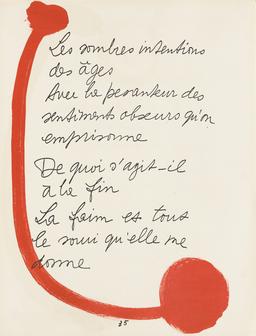 Les sombres intentions
des âges
Avec la pesanteur des
sentiments obscurs qu'on
emprisonne
De quoi s'agit-il
à la fin
La faim et tous
le souci qu'elle me
donne
35